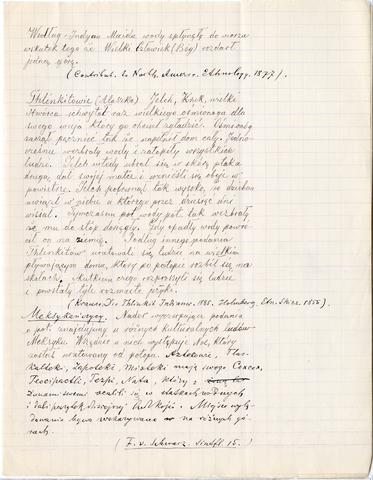 Według Indyan Maidu wody spłynęły do morza
wskutek tego że Wielki Człowiek (Bóg) rozdarł
jedną górę.
(Contribut. to North Americ. Ethnology. 1877).
Thlinkitowie (Alaszka) Jelch, Kruk, wielki
stwórca schwytał raz wielkiego ośmionoga dla
swego wuja który go chciał zgładzić. Ośmionóg
zaczął pęcznieć tak że napełnił dom cały. Jedno-
cześnie wezbrały wody i zatopiły wszystkich
ludzi. Jelch wtedy ubrał się w skórę ptaka
drugą dał swojej matce i wznieśli się oboje w
powietrze. Jelch pofrunął tak wysoko, że dziobem
uwiązł w niebie u którego przez dziesięć dni
wisiał. Tymczasem pot. wody pot. tak wezbrały
że mu do stóp dosięgły. Gdy opadły wody powró-
cił on na ziemię. Podług innego podania
Thlinkitów uratowali się ludzie na wielkim
pływającym domu, który po potopie rozbił się na
skałach. Skutkiem czego rozproszyli się ludzie
i powstały tyle rozmaite języki.
(Krause, Die Thlinkit Indianer. 1885. Holmberg. Etn. Skizz. 1855).
Meksykańczycy. Nader wyczerpujące podania
o pot. znajdujemy u różnych kulturalnych ludów
Meksyku. Wszędzie u nich występuje Noe, który
został uratowany od potopu. Aztekowie, Tlas-
kalteki, Zapoteki, Misteki mają swego Coxcox,
Teocipactli, Tezpi, Nata, którzy z
żonami swemi ocalili się w statkach
i dali początek dzisiejszej ludzkości. Miejsce wylą-
dowania bywa wskazywane na różnych gó-
rach.
(F. v. Schwarz. Sintfl. 15.)